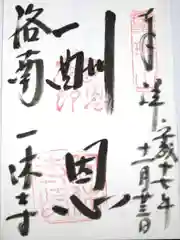 奉拝
平成十七年
十一月廿三日
酬恩
洛南 一休寺